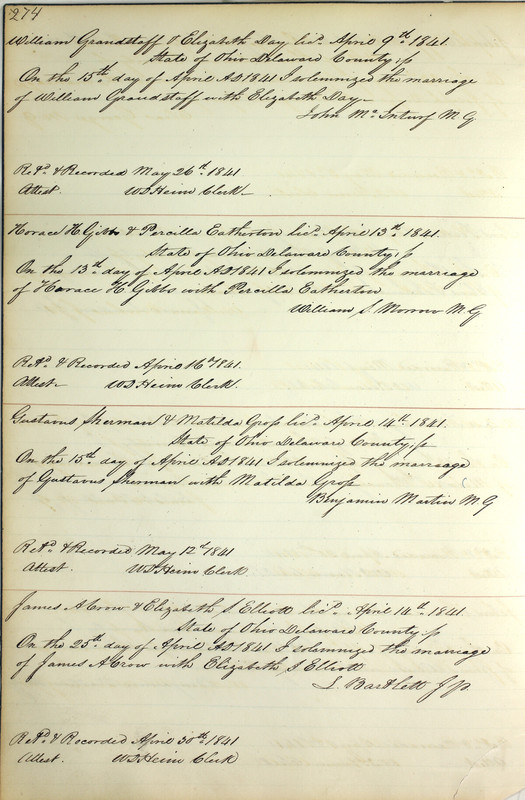 274
William Grandstaff & Elizabeth Day lic^d. April 9th. 1841.
State of Ohio Delaware County, ss
On the 15th. day of April AD 1841 I solemnized the marriage
of William Grandstaff with Elizabeth Day
John Mc Inturf M G
Ret^d. & Recorded May 26th. 1841
Attest. WD Heim Clerk
Horace H Gibbs & Percilla Eatherton lic^d. April 13th. 1841.
State of Ohio Delaware County, ss
On the 13th. day of April AD 1841 I solemnized the marriage
of Horace H Gibbs with Percilla Eatherton
William S. Morrow M. G
Ret^d. & Recorded April 16th 1841.
Attest WD Heim Clerk.
Gustavus Sherman & Matilda Gross lic^d. April 14th. 1841.
State of Ohio Delaware County, ss
On the 15th. day of April AD 1841 I solemnized the marriage
of Gustavus Sherman with Matilda Gross
Benjamin Martin M. G
Ret^d. & Recorded May 12th 1841
Attest. WD Heim Clerk
James A Crow & Elizabeth S Elliott lic^d. April 14th. 1841.
State of Ohio Delaware County ss
On the 25th. day of April AD 1841 I solemnized the marriage
of James A Crow with Elizabeth S Elliott
L. Bartlett J P.
Ret^d. & Recorded April 30th. 1841
Attest. WD Heim Clerk